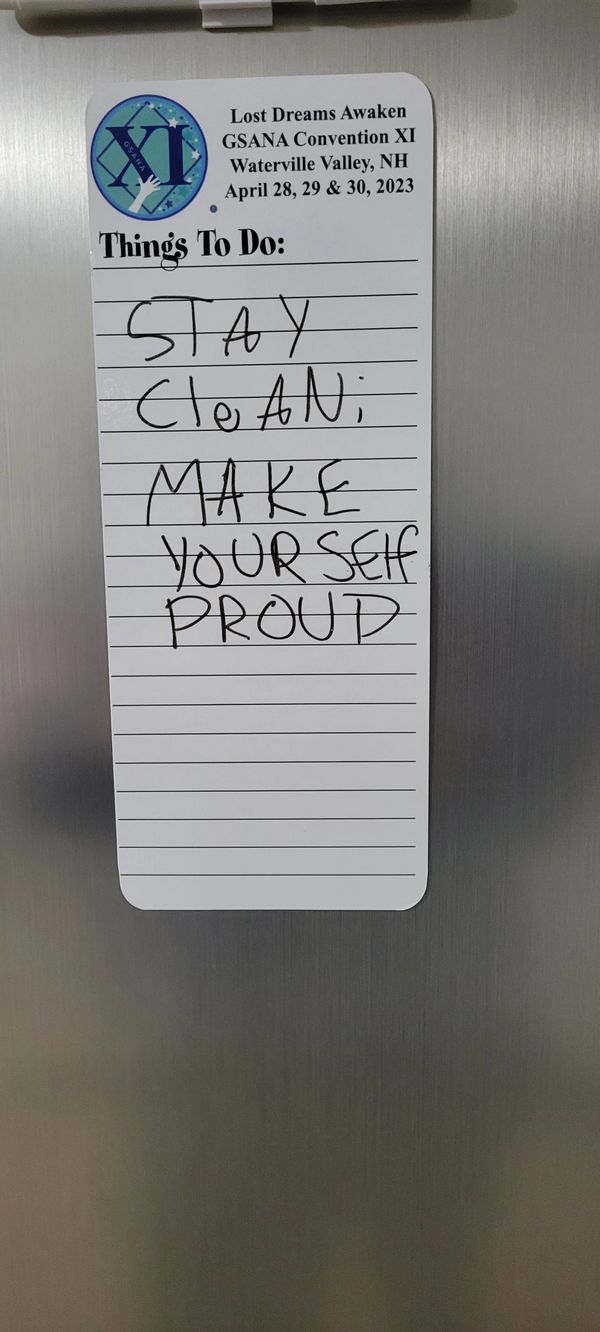 XI
GSANA
Lost Dreams Awaken
GSANA Convention XI
Waterville Valley, NH
April 28, 29 & 30, 2023
Things To Do:
STAY
CleAN;
MAKE
YOURSElf
PROUD